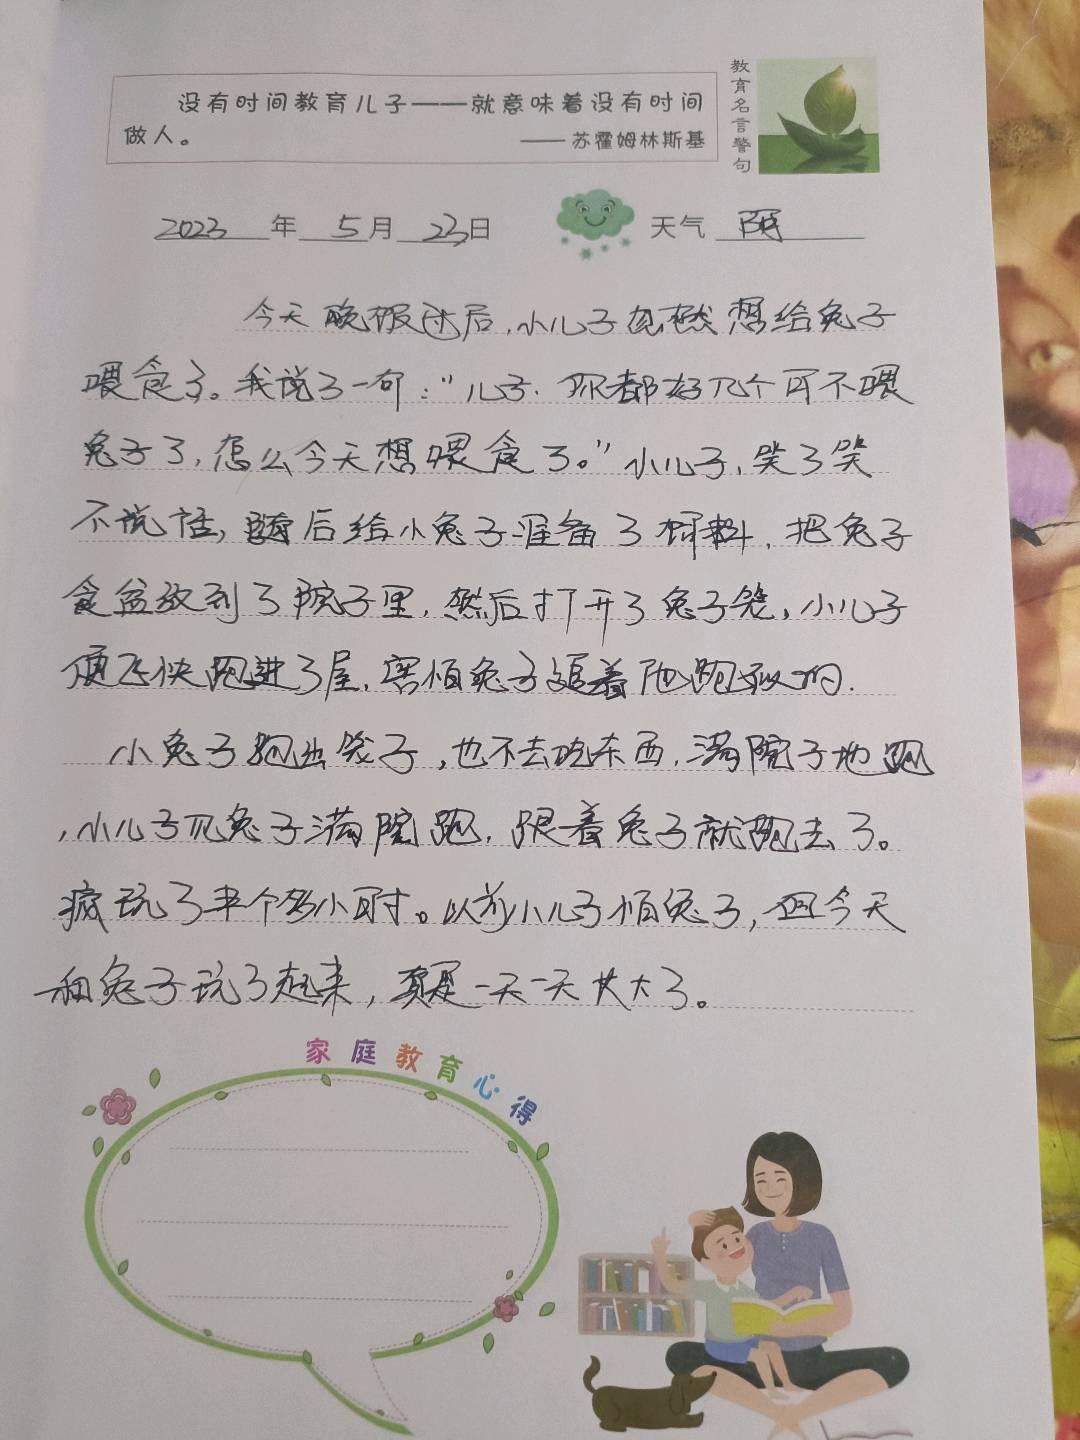 没有时间教育儿子——就意味着没有时间
做人。
——苏霍姆林斯基
教育名言警句
2023年5月23日 天气 阴
今天晚饭过后,小儿子忽然想给兔子
喂食了。我说了一句:“儿子.你都好几个月不喂
兔子了,怎么今天想喂食了。”小儿子,笑了笑
不说话,随后给小兔子准备了饲料,把兔子
食盆放到了院子里,然后打开了兔子笼,小儿子
便飞快跑进了屋,害怕兔子追着他跑似的.
小兔子跑出笼子,也不去吃东西,满院子地跑
,小儿子见兔子满院跑,跟着兔子就跑去了。
疯玩了半个多小时。以前小儿子怕兔子,但今天
和兔子玩了起来,真是一天一天长大了。
家庭教育心得